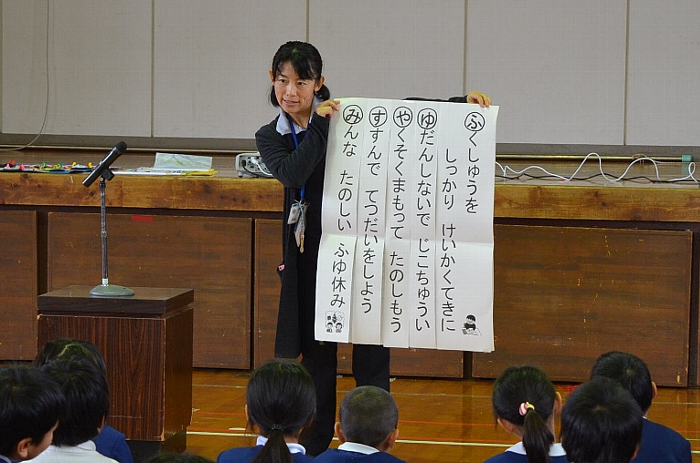 ふくしゅうを
しっかり けいかくてきに
ゆだんしないで じこちゅうい
やくそくまもって たのしもう
すすんで てつだいをしよう
みんな たのしい ふゆ休み